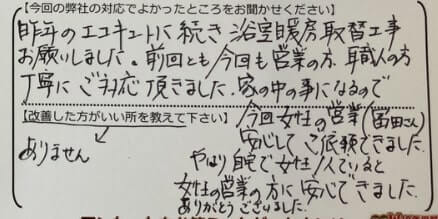 【今回の弊社の対応でよかったところをお聞かせください】
昨年のエコキュートに続き浴室暖房取替工事
お願いしました。前回とも今回も営業の方、職人の方
丁寧にご対応頂きました。家の中の事になるので
今回女性の営業(富田さん)
安心してご依頼できました。
やはり自宅で女性1人でいると
女性の営業の方に安心できました。
ありがとうございました。
【改善した方がいい所を教えて下さい】
ありません